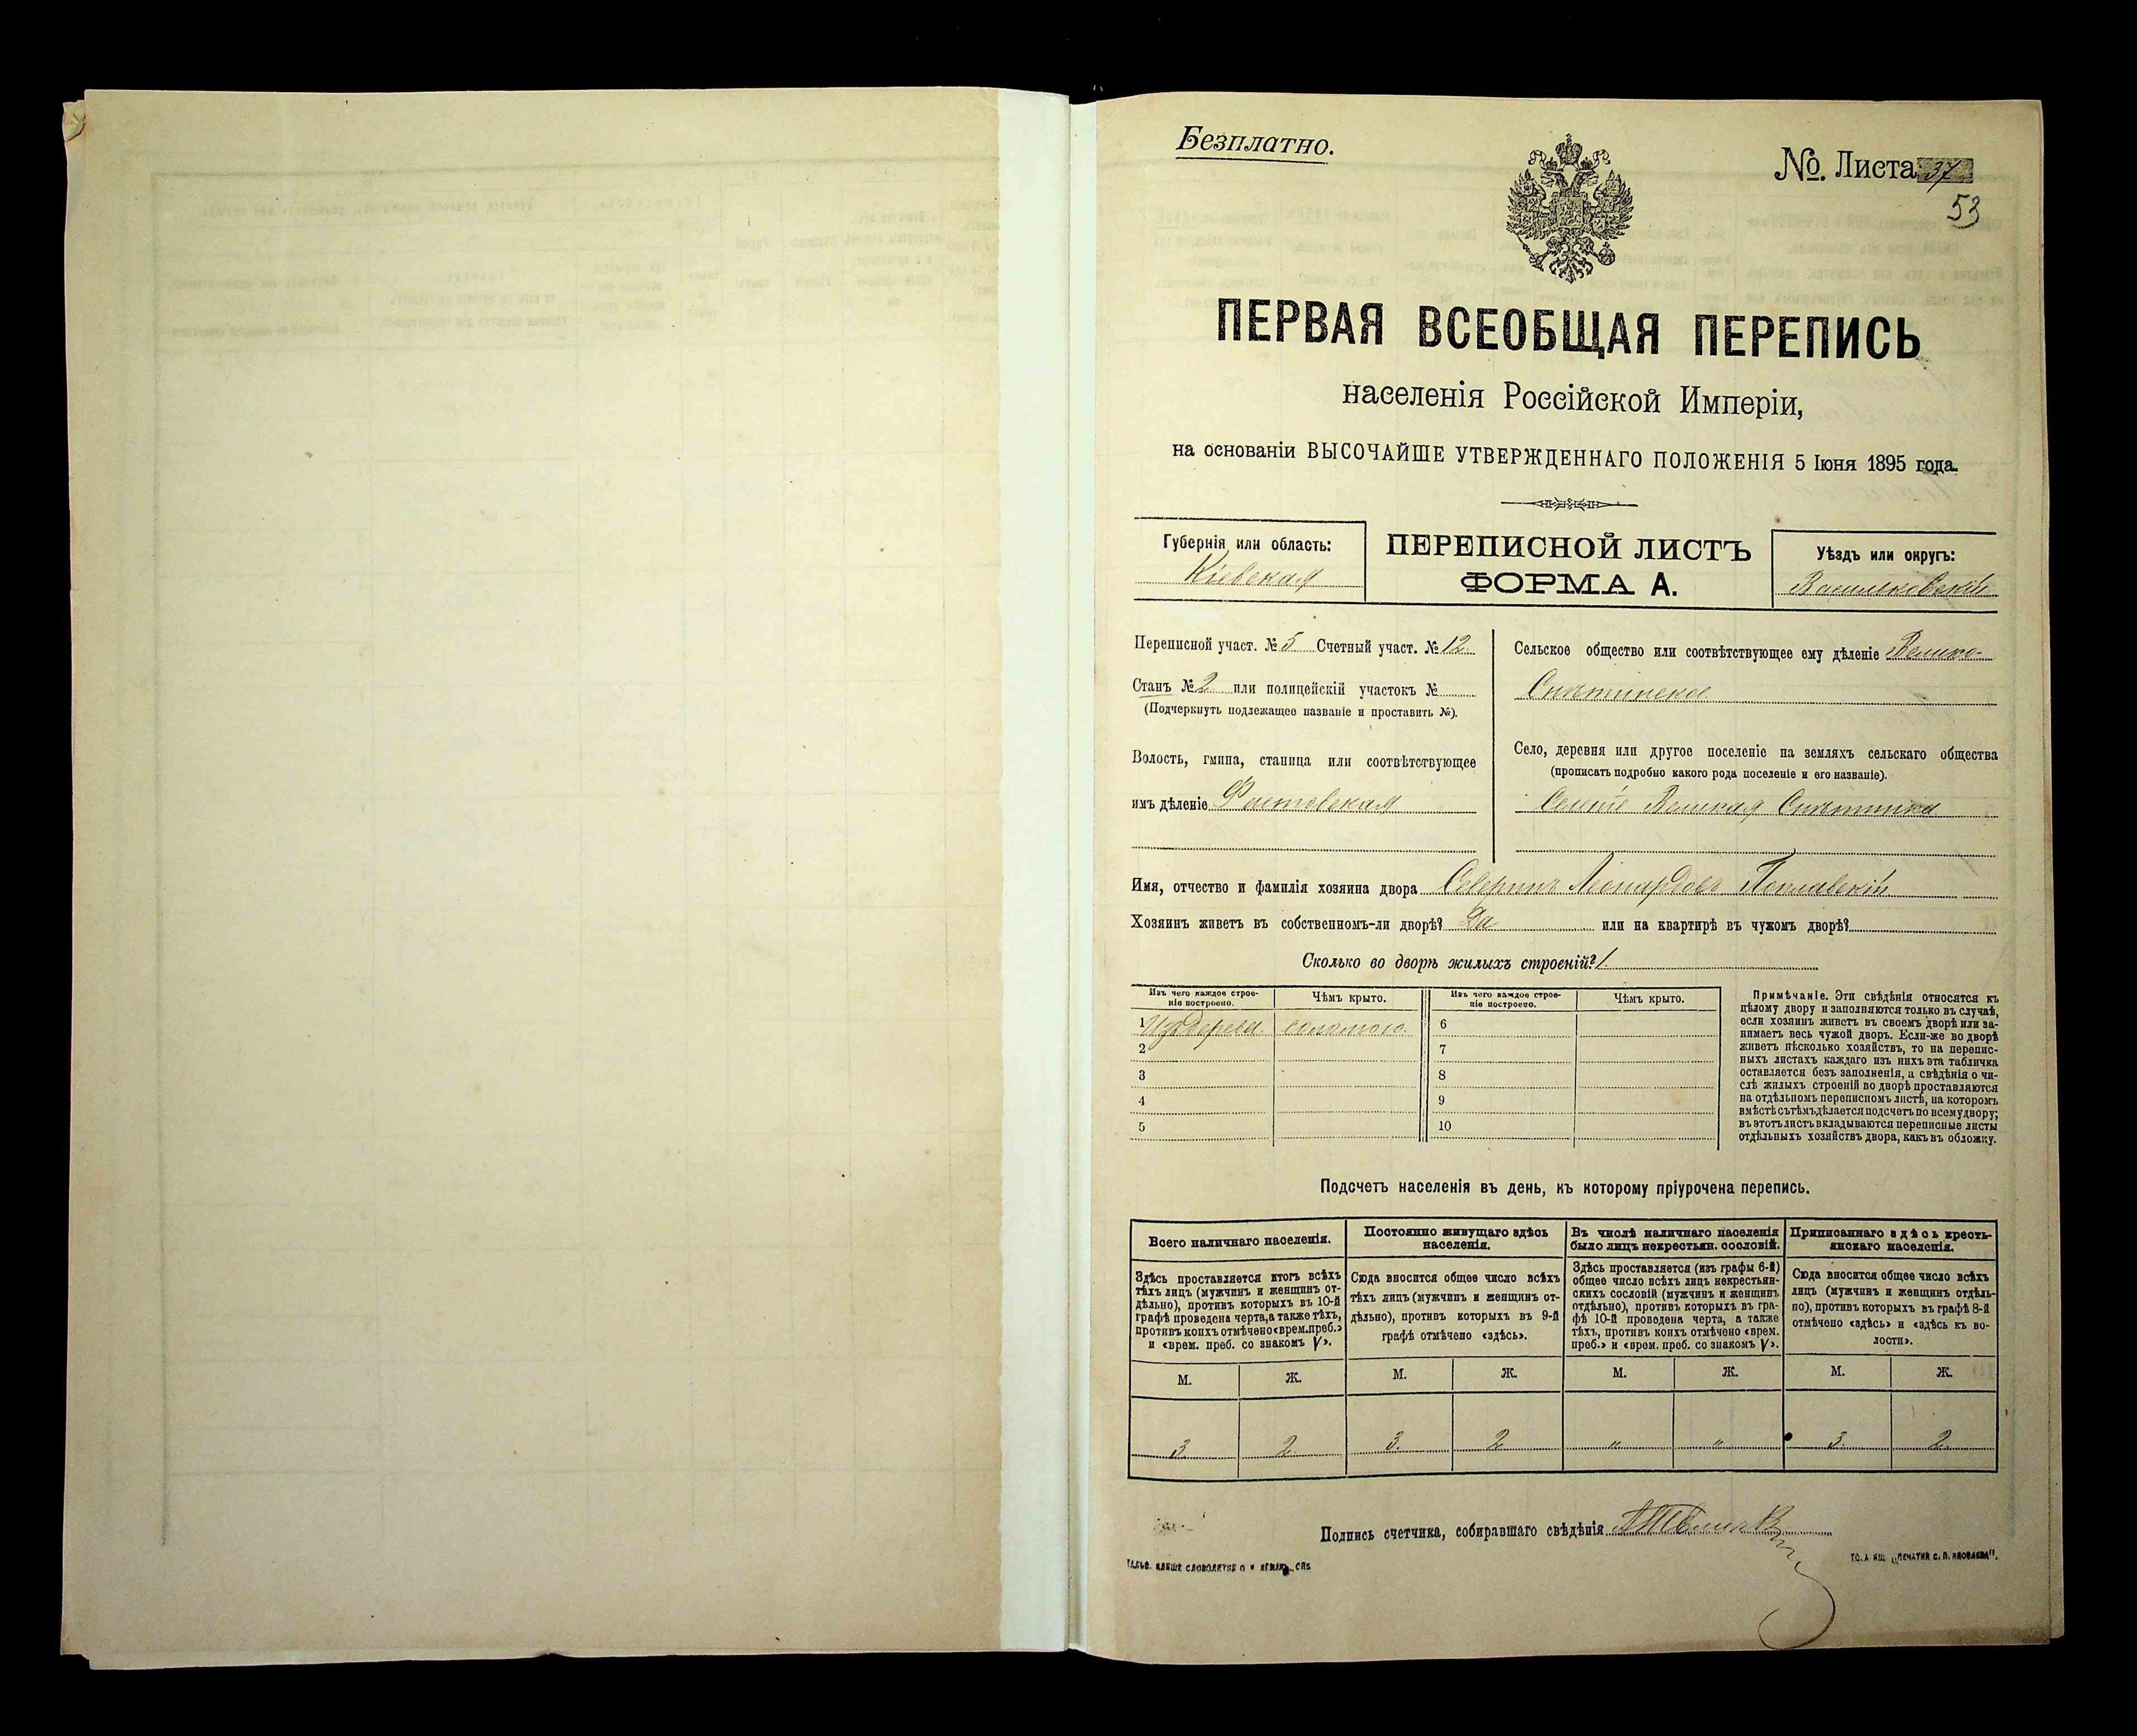 Безплатно.
№. Листа 37
53
ПЕРВАЯ ВСЕОБЩАЯ ПЕРЕПИСЬ
населенія Россійской Имперіи,
на основаніи ВЫСОЧАЙШЕ УТВЕРЖДЕННАГО ПОЛОЖЕНІЯ 5 Іюня 1895 года.
Губернія или область:
Кіевская
ПЕРЕПИСНОЙ ЛИСТЪ
ФОРМА А.
Уѣздъ или округъ:
Васильковскій
Переписной участ. № 5 Счетный участ. № 12.
Станъ № 2 или полицейскій участокъ №
(Подчеркнуть подлежащее названіе и проставить №).
Волость, гмина, станица или соотвѣтствующее
имъ дѣленіе Фастовская
Сельское общество или соотвѣтствующее ему дѣленіе Велико-
Снѣтинское
Село, деревня или другое поселеніе на земляхъ сельскаго общества
(прописать подробно какого рода поселеніе и его названіе).
Великая Снѣтинка
Имя, отчество и фамилія хозяина двора Северинъ Леонардовъ
Хозяинъ живетъ въ собственномъ-ли дворѣ? Да или на квартирѣ въ чужомъ дворѣ?
Сколько во дворѣ жилыхъ строеній? 1.
Изъ чего каждое строе-
ніе построено.
Чѣмъ крыто.
Изъ чего каждое строе-
ніе построено.
Чѣмъ крыто.
1 Изъ дерева. соломою. 6
2 7
3 8
4 9
5 10
Примѣчаніе. Эти свѣдѣнія относятся къ
цѣлому двору и заполняются только въ случаѣ,
если хозяинъ живетъ въ своемъ дворѣ или за-
нимаетъ весь чужой дворъ. Если-же во дворѣ
живетъ нѣсколько хозяйствъ, то на перепис-
ныхъ листахъ каждаго изъ нихъ эта табличка
оставляется безъ заполненія, а свѣдѣнія о чи-
слѣ жилыхъ строеній во дворѣ проставляются
на отдѣльномъ переписномъ листѣ, на которомъ
вмѣстѣ съ тѣмъ дѣлается подсчетъ по всему двору;
въ этотъ листъ вкладываются переписные листы
отдѣльныхъ хозяйствъ двора, какъ въ обложку.
Подсчетъ населенія въ день, къ которому пріурочена перепись.
Всего наличнаго населенія.
Здѣсь проставляется итогъ всѣхъ
тѣхъ лицъ (мужчинъ и женщинъ от-
дѣльно), противъ которыхъ въ 10-й
графѣ проведена черта, а также тѣхъ,
противъ коихъ отмѣчено «врем. преб.»
и «врем. преб. со знакомъ V».
Постоянно живущаго здѣсь
населенія.
Сюда вносится общее число всѣхъ
тѣхъ лицъ (мужчинъ и женщинъ от-
дѣльно), противъ которыхъ въ 9-й
графѣ отмѣчено «здѣсь».
Въ числѣ наличнаго населенія
было лицъ некрестьян. сословій.
Здѣсь проставляется (изъ графы 6-й)
общее число всѣхъ лицъ некрестьян-
скихъ сословій (мужчинъ и женщинъ
отдѣльно), противъ которыхъ въ гра-
фѣ 10-й проведена черта, а также
тѣхъ, противъ коихъ отмѣчено «врем.
преб.» и «врем. преб. со знакомъ V».
Приписаннаго здѣсь кресть-
янскаго населенія.
Сюда вносится общее число всѣхъ
лицъ (мужчинъ и женщинъ отдѣль-
но), противъ которыхъ въ графѣ 8-й
отмѣчено «здѣсь» и «здѣсь къ во-
лости».
М. Ж. М. Ж. М. Ж. М. Ж.
3 2. 3. 2 „ „ 3. 2.
Подпись счетчика, собиравшаго свѣдѣнія